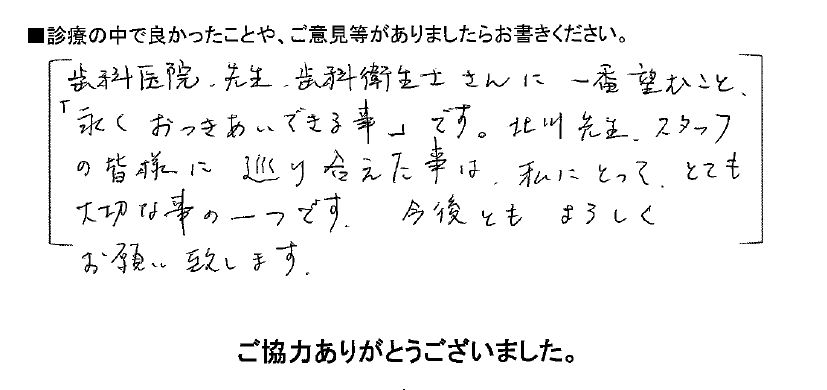 ■診療の中で良かったことや、ご意見等がありましたらお書きください。
歯科医院、先生、歯科衛生士さんに一番望むこと、
「永くおつきあいできる事」です。北川先生、スタッフ
の皆様に巡り合えた事は、私にとって、とても
大切な事の一つです。今後ともよろしく
お願い致します。
ご協力ありがとうございました。